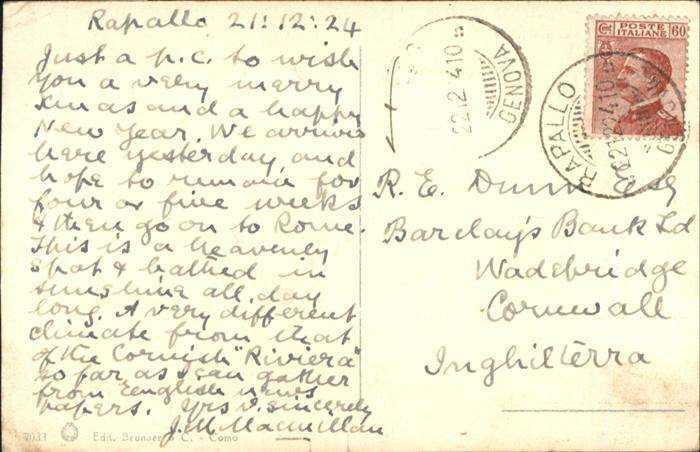 Rapallo 21:12:24
Just a p.c. to wish
you a very merry
Xmas and a happy
New Year. We arrived
here yesterday and
hope to remain for
four or five weeks
& then go on to Rome.
This is a heavenly
spot & bathed in
sunshine all day
long. A very different
climate from that
of the Cornish "Riviera"
so far as I can gather
from English news
papers. Yrs v. sincerely
J.M. Macmillan
7033 Edit. Brunner & C. - Como
GENOVA
22.12.24.10
POSTE
ITALIANE
Cent 60
RAPALLO
R. E. Dunn Esq
Barclay's Bank Ld
Wadebridge
Cornwall
Inghilterra